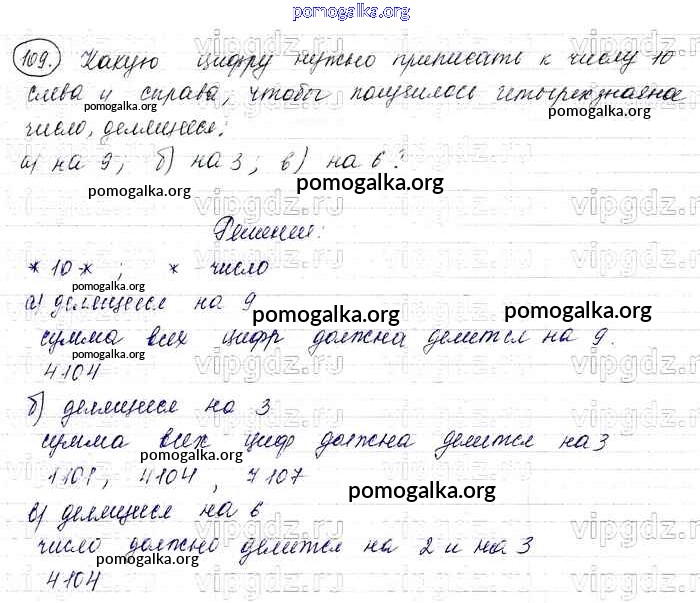 pomogalka.org
109. Какую цифру нужно приписать к числу 10
слева и справа, чтобы получилось четырехзначное
pomogalka.org
число, делящееся:
а) на 9; б) на 3; в) на 6?
pomogalka.org
pomogalka.org
Решение:
*10*; * число
pomogalka.org
а) делящееся на 9
pomogalka.org
pomogalka.org
сумма всех цифр должна делится на 9.
pomogalka.org
4104
б) делящееся на 3
сумма всех циф должна делится на 3
pomogalka.org
1101, 4104, 7107
pomogalka.org
в) делящееся на 6
число должно делится на 2 и на 3
pomogalka.org
4104
vipgdz.ru